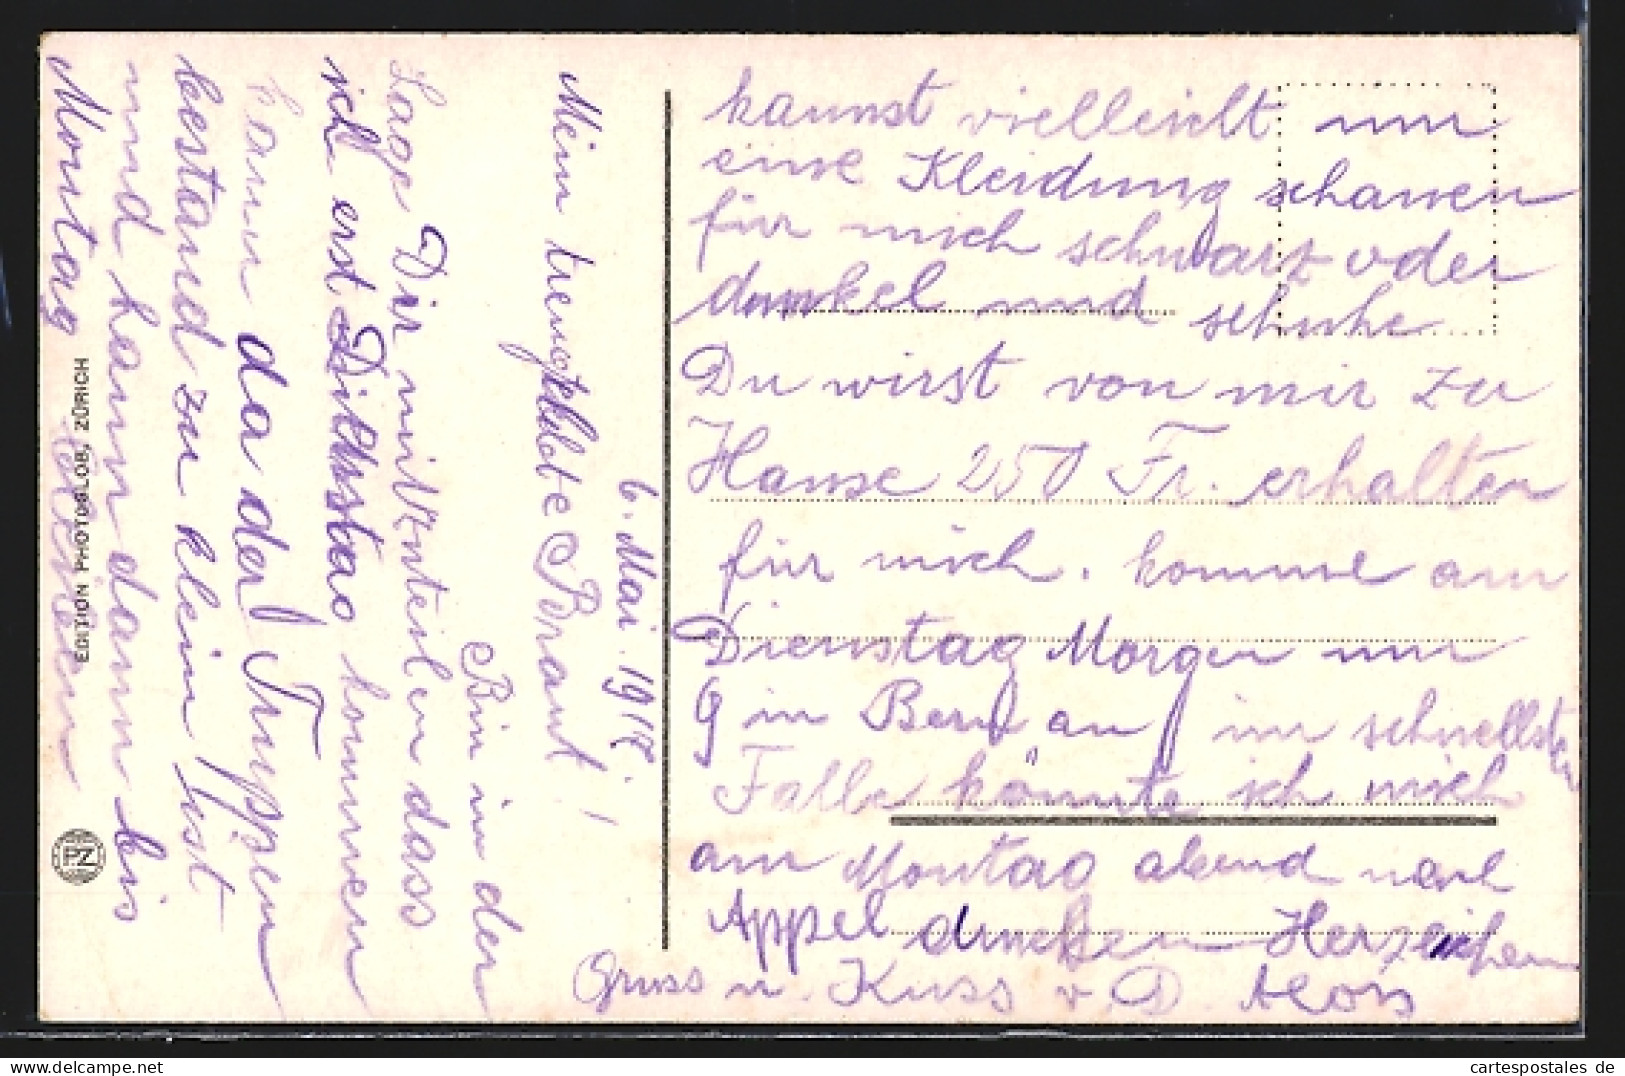 6. Mai 1918.
Mein treugeliebte Braut!
Bin in der
Lage Dir mitzuteilen dass
ich erst Dienstag kommen
kann da der Truppen
bestand zu klein ist
und kann dann bis
Montag
kannst vielleicht nur
eine Kleidung schauen
für mich schwarz oder
dunkel und schuhe
Du wirst von mir zu
Hause 250 Fr. erhalten
für mich. komme am
Dienstag Morgen um
9 in Bern an im schnellsten
Falle könnte ich mich
am Montag abend nach
Appel drucken Herzeichen
Gruss u. Kuss v. D. Alois
EDITION PHOTOGLOB, ZÜRICH
PZ
cartespostales de